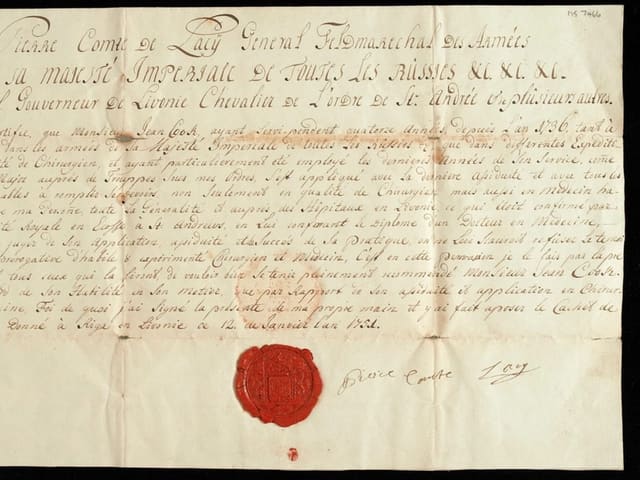 MS 7466
Pierre Comte de Lacÿ General Feldmarechal des Armées
sa majesté Imperiale de Toutes Les Russies &c. &c. &c.
Gouverneur de Livonie Chevalier de L'ordre de St. André & plusieurs autres.
que Monsieur Jean Cook, ayant servi pendent quatorze Années, depuis L'an 1736, tant à
dans les armées de Sa Majesté Imperiale de toutes les Russies que dans differentes Expedit
té de Chirurgien, et ayant particulierement été employé les dernieres Années de son Service, come
Major aupres de Trouppes sous mes Ordres, s'est appliqué avec la derniere Assiduité et avec tous les
ables à remplir non seulement en qualité de Chirurgien mais aussi en Medecin ha
ma toute la Généralité et aupres des Hôpitaux en ce qui étoit confirmé par
té Royale en Ecosse à St. Andreous, en Lui conferant le Diplome d'un Docteur en Medecine,
juger de Son Application, assiduité & Succès de Sa Pratique, on ne Lui Scauroit refuser
prerogative d'habile & experimenté Chirurgien et Medecin, C'est en cette je le fais par la pre
tous ceux qui la liront de vouloir bien Se tenir pleinement recommendé Monsieur Jean Cook
de Son Habilité en Son metier, que par Rapport de Son assiduité et application en Chirur
cine Foi de quoi j'ai Signé la presente de ma propre main et y ai fait aposer le Cachet de
Donné à Riga en Livonie ce 12. de Janvier l'an 1751.
Pierre Comte Lacy